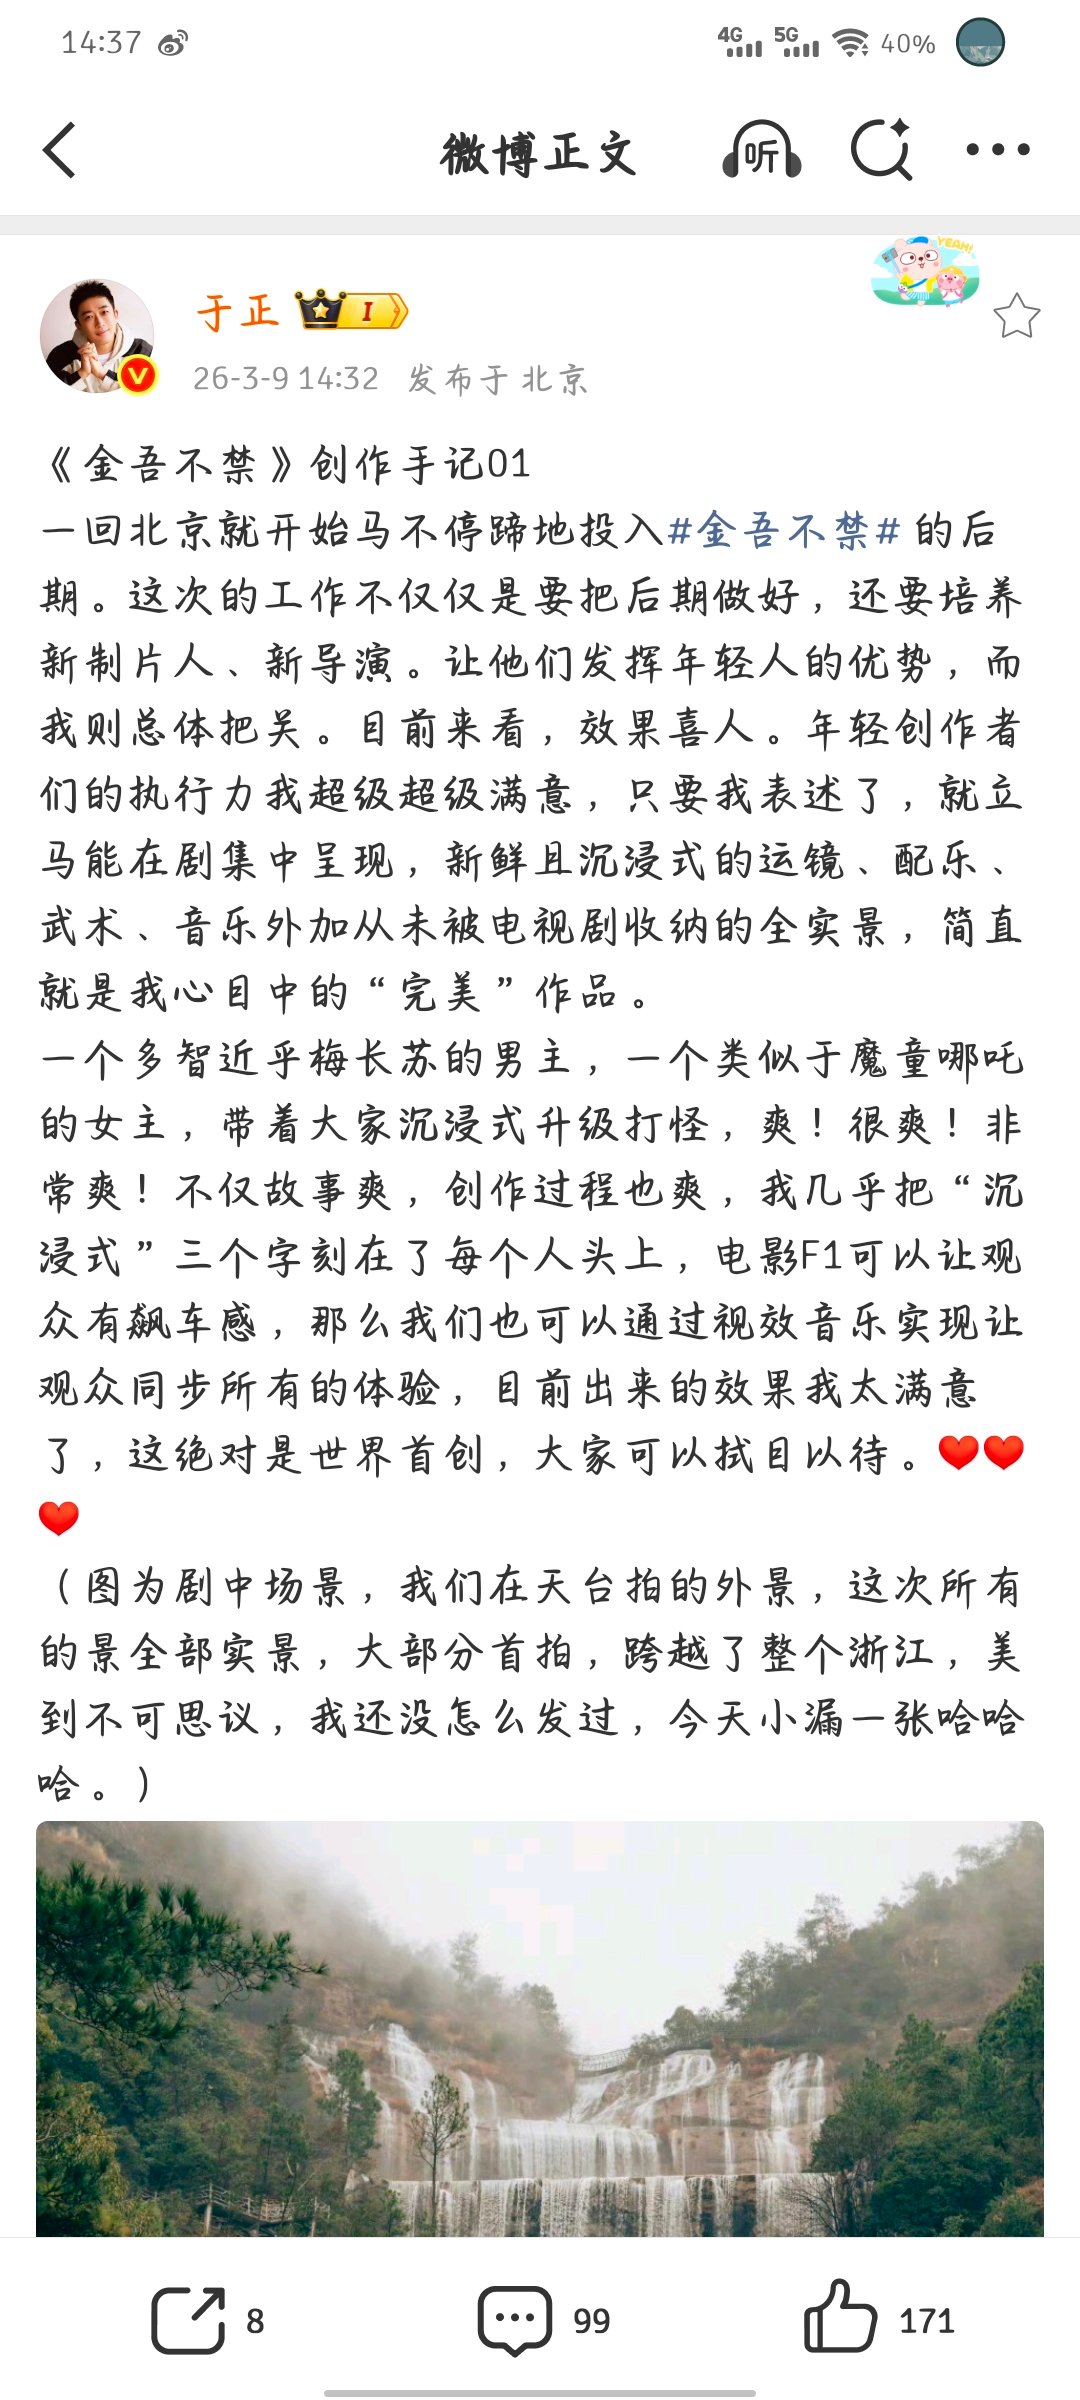 14:37
4G 5G 40%
微博正文
听
YEAH!
于正 I
26-3-9 14:32 发布于 北京
《金吾不禁》创作手记01
一回北京就开始马不停蹄地投入#金吾不禁# 的后
期。这次的工作不仅仅是要把后期做好，还要培养
新制片人、新导演。让他们发挥年轻人的优势，而
我则总体把关。目前来看，效果喜人。年轻创作者
们的执行力我超级超级满意，只要我表述了，就立
马能在剧集中呈现，新鲜且沉浸式的运镜、配乐、
武术、音乐外加从未被电视剧收纳的全实景，简直
就是我心目中的“完美”作品。
一个多智近乎梅长苏的男主，一个类似于魔童哪吒
的女主，带着大家沉浸式升级打怪，爽！很爽！非
常爽！不仅故事爽，创作过程也爽，我几乎把“沉
浸式”三个字刻在了每个人头上，电影F1可以让观
众有飙车感，那么我们也可以通过视效音乐实现让
观众同步所有的体验，目前出来的效果我太满意
了，这绝对是世界首创，大家可以拭目以待。❤️❤️
❤️
（图为剧中场景，我们在天台拍的外景，这次所有
的景全部实景，大部分首拍，跨越了整个浙江，美
到不可思议，我还没怎么发过，今天小漏一张哈哈
哈。）
8 99 171